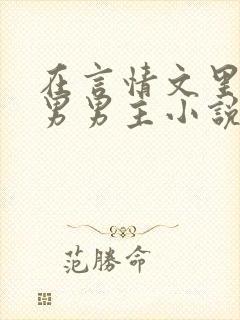 在言情文里
男男主小說
范勝命